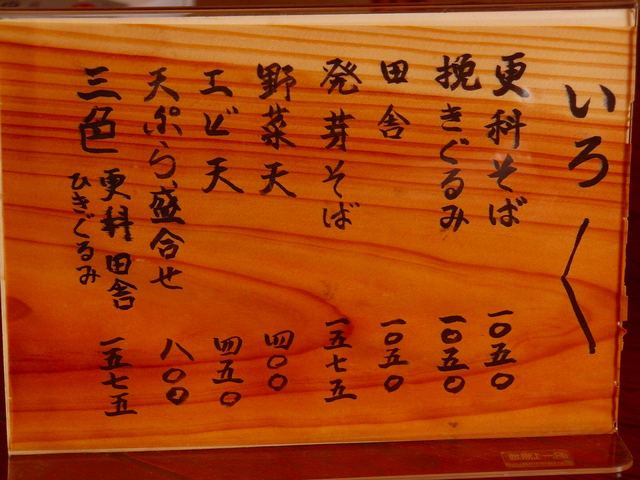 いろ〱
更科そば 一〇五〇
挽きぐるみ 一〇五〇
田舎 一〇五〇
発芽そば 一五七五
野菜天 四〇〇
エビ天 四五〇
天ぷら盛合せ 八〇〇
三色 更科 田舎 ひきぐるみ 一五七五